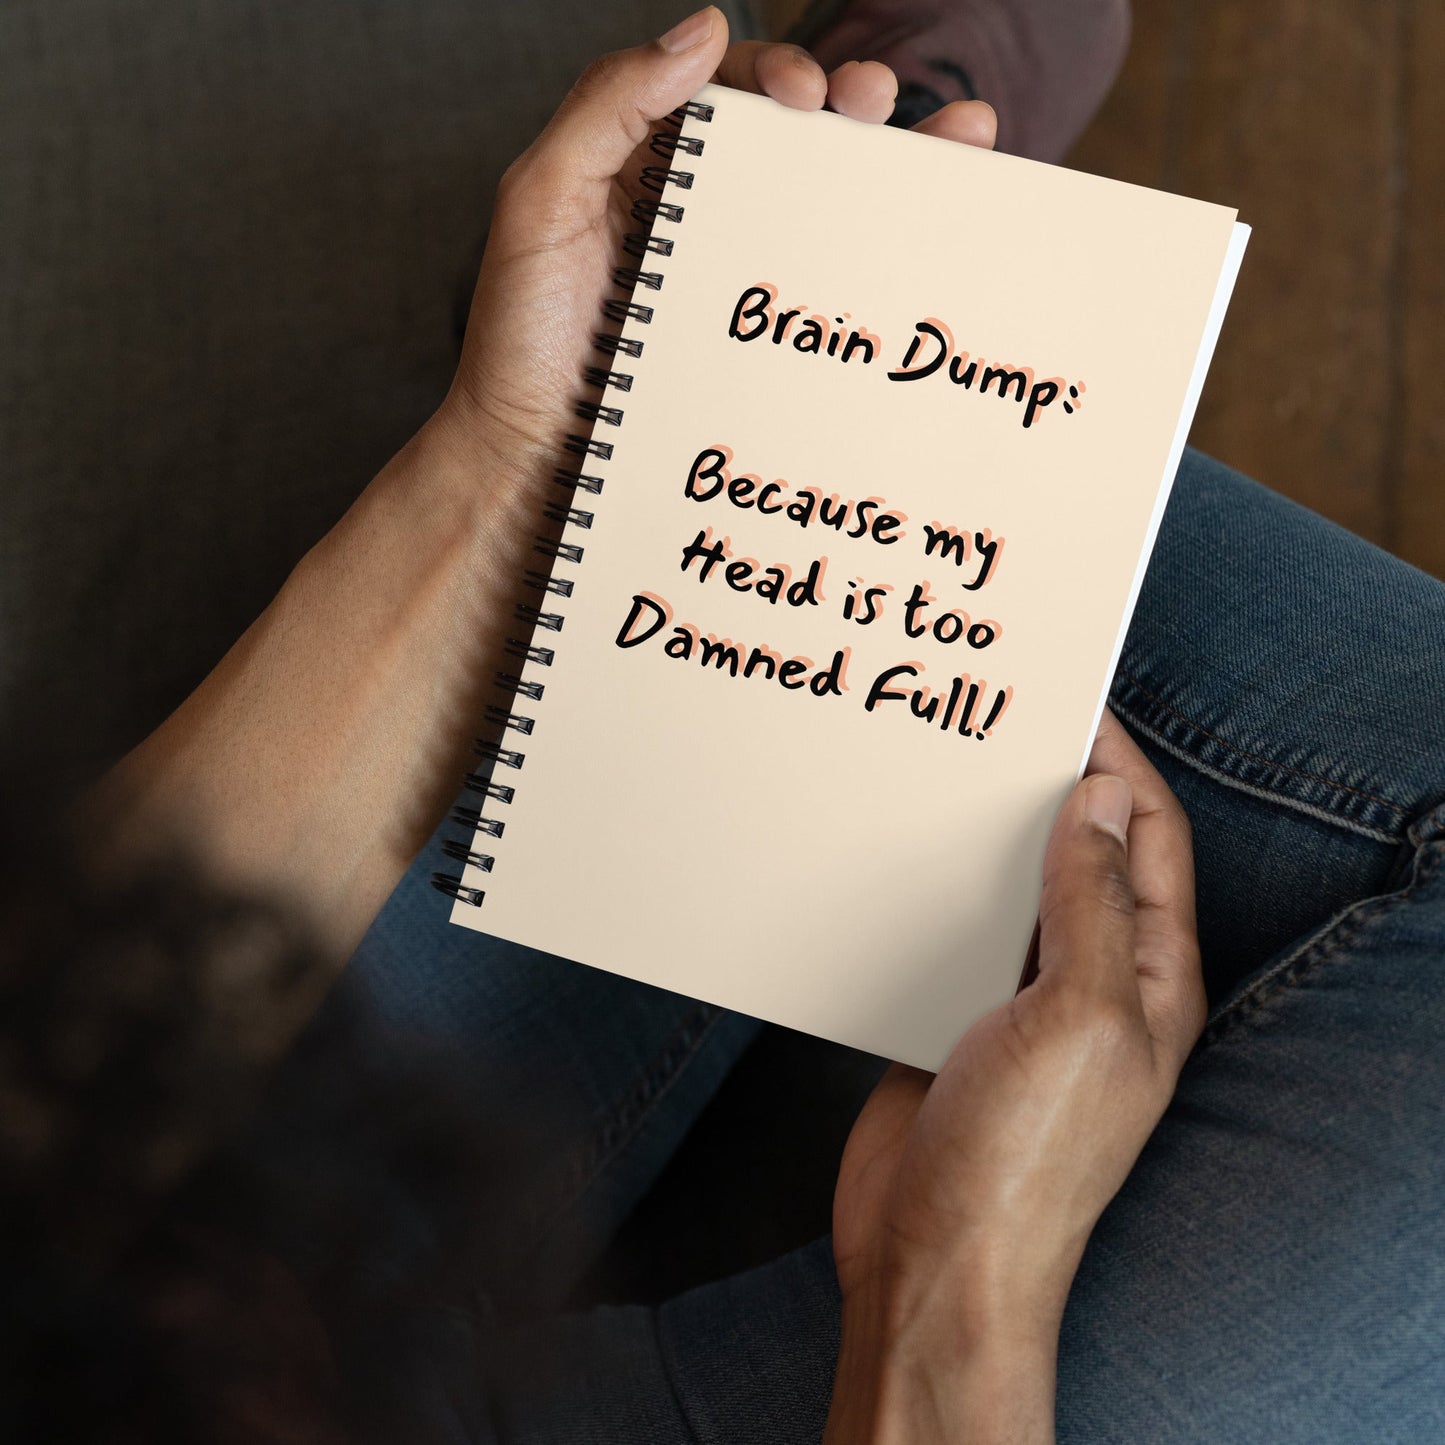 Brain Dump:
Because my
Head is too
Damned Full!